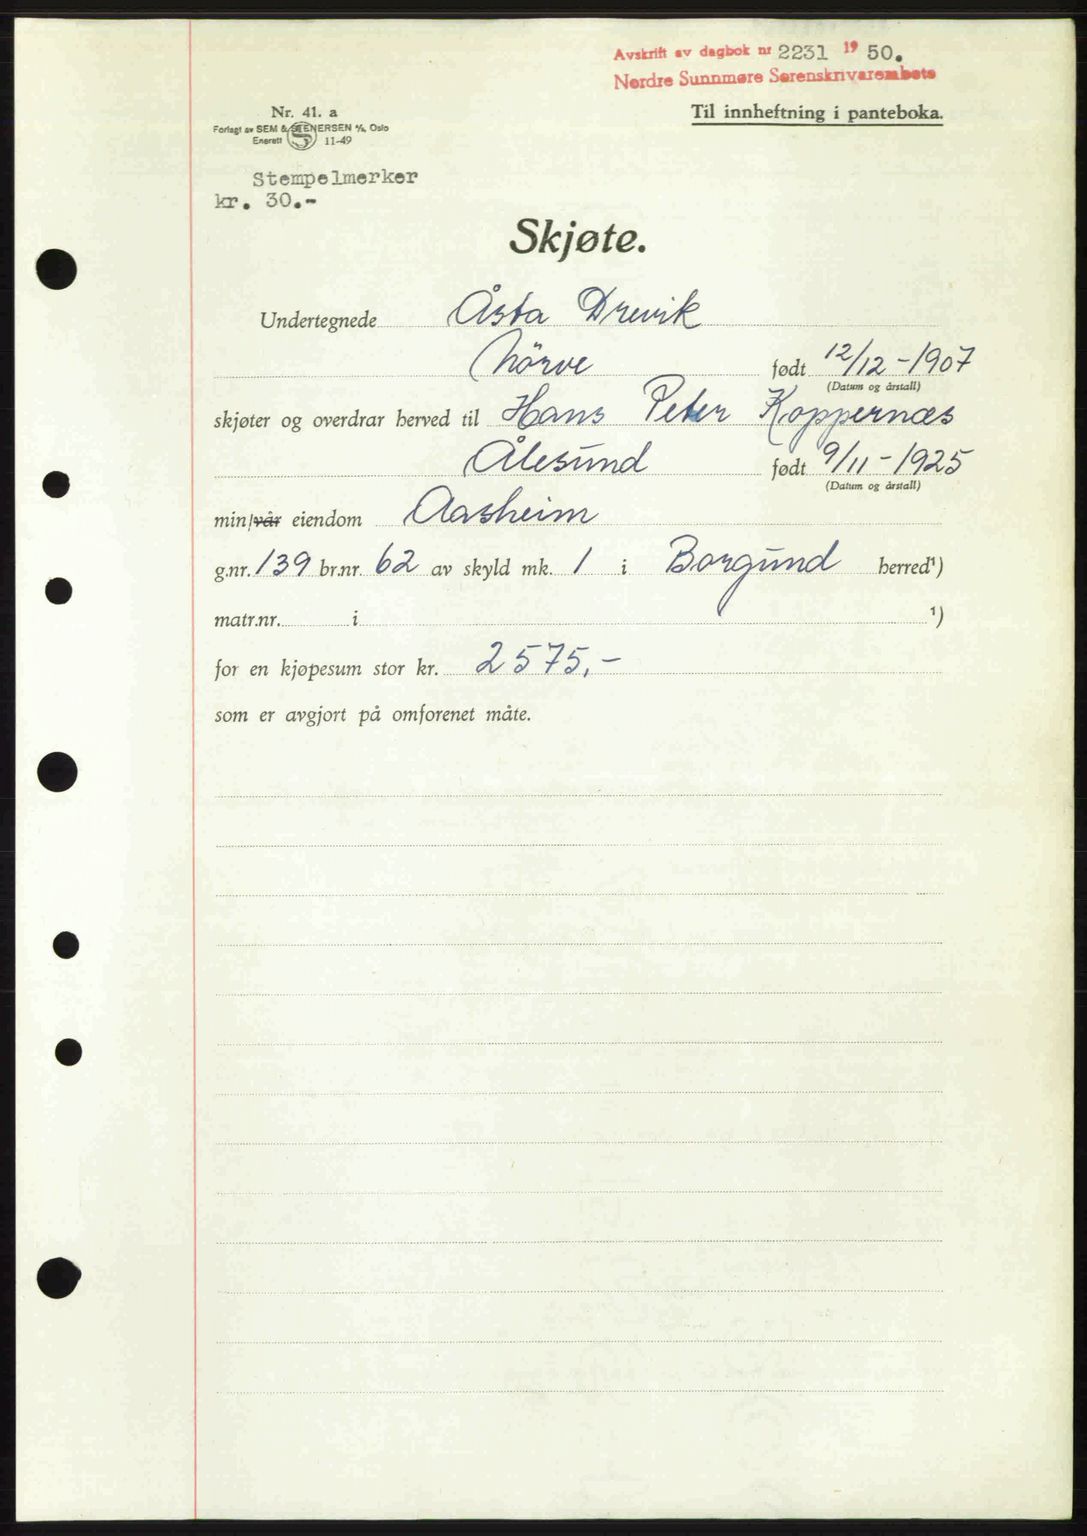 Avskrift av dagbok nr 2231 19 50.
Nordre Sunnmøre Sorenskrivarembete
Nr. 41. a
Forlagt av SEM & STENERSEN A/S, Oslo
Enerett S 11-49
Til innheftning i panteboka.
Stempelmerker
kr. 30.-
Skjøte.
Undertegnede Åsta Drevik
Nörve født 12/12 - 1907
(Datum og årstall)
skjøter og overdrar herved til Hans Peter Koppernæs
Ålesund født 9/11 - 1925
(Datum og årstall)
min/vår eiendom Aasheim
g.nr. 139 br.nr. 62 av skyld mk. 1 i Borgund herred¹)
matr.nr. i ¹)
for en kjøpesum stor kr. 2575,-
som er avgjort på omforenet måte.